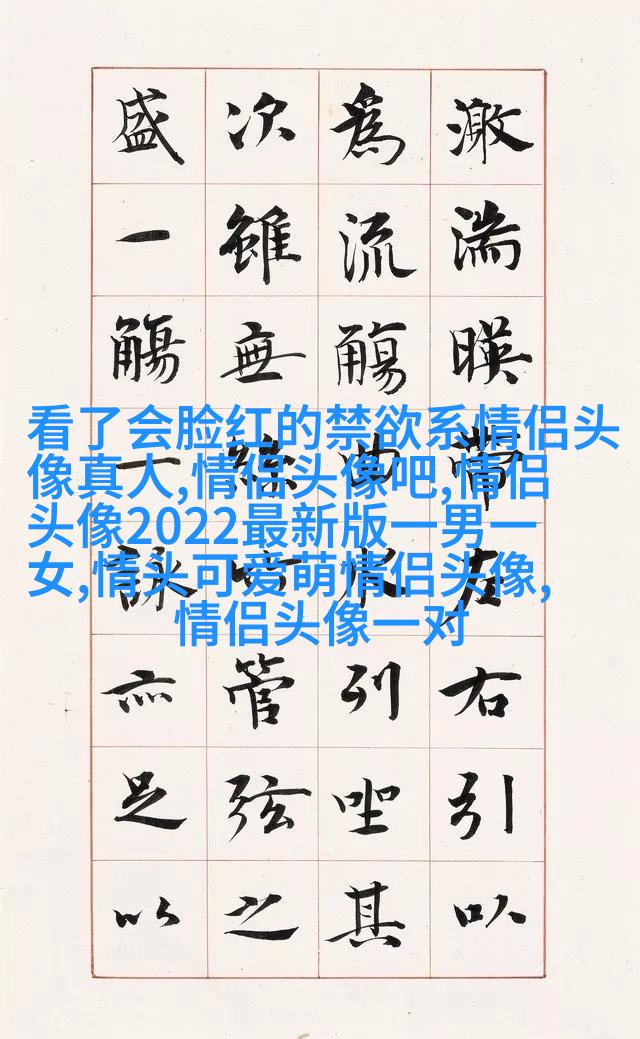 激湍暎帶左右引以
為流觴曲水列坐其
次雖無絲竹管弦之
盛一觴一詠亦足以
看了会脸红的禁欲系情侣头
像真人,情侣头像吧,情侣
头像2022最新版一男一
女,情头可爱萌情侣头像,
情侣头像一对